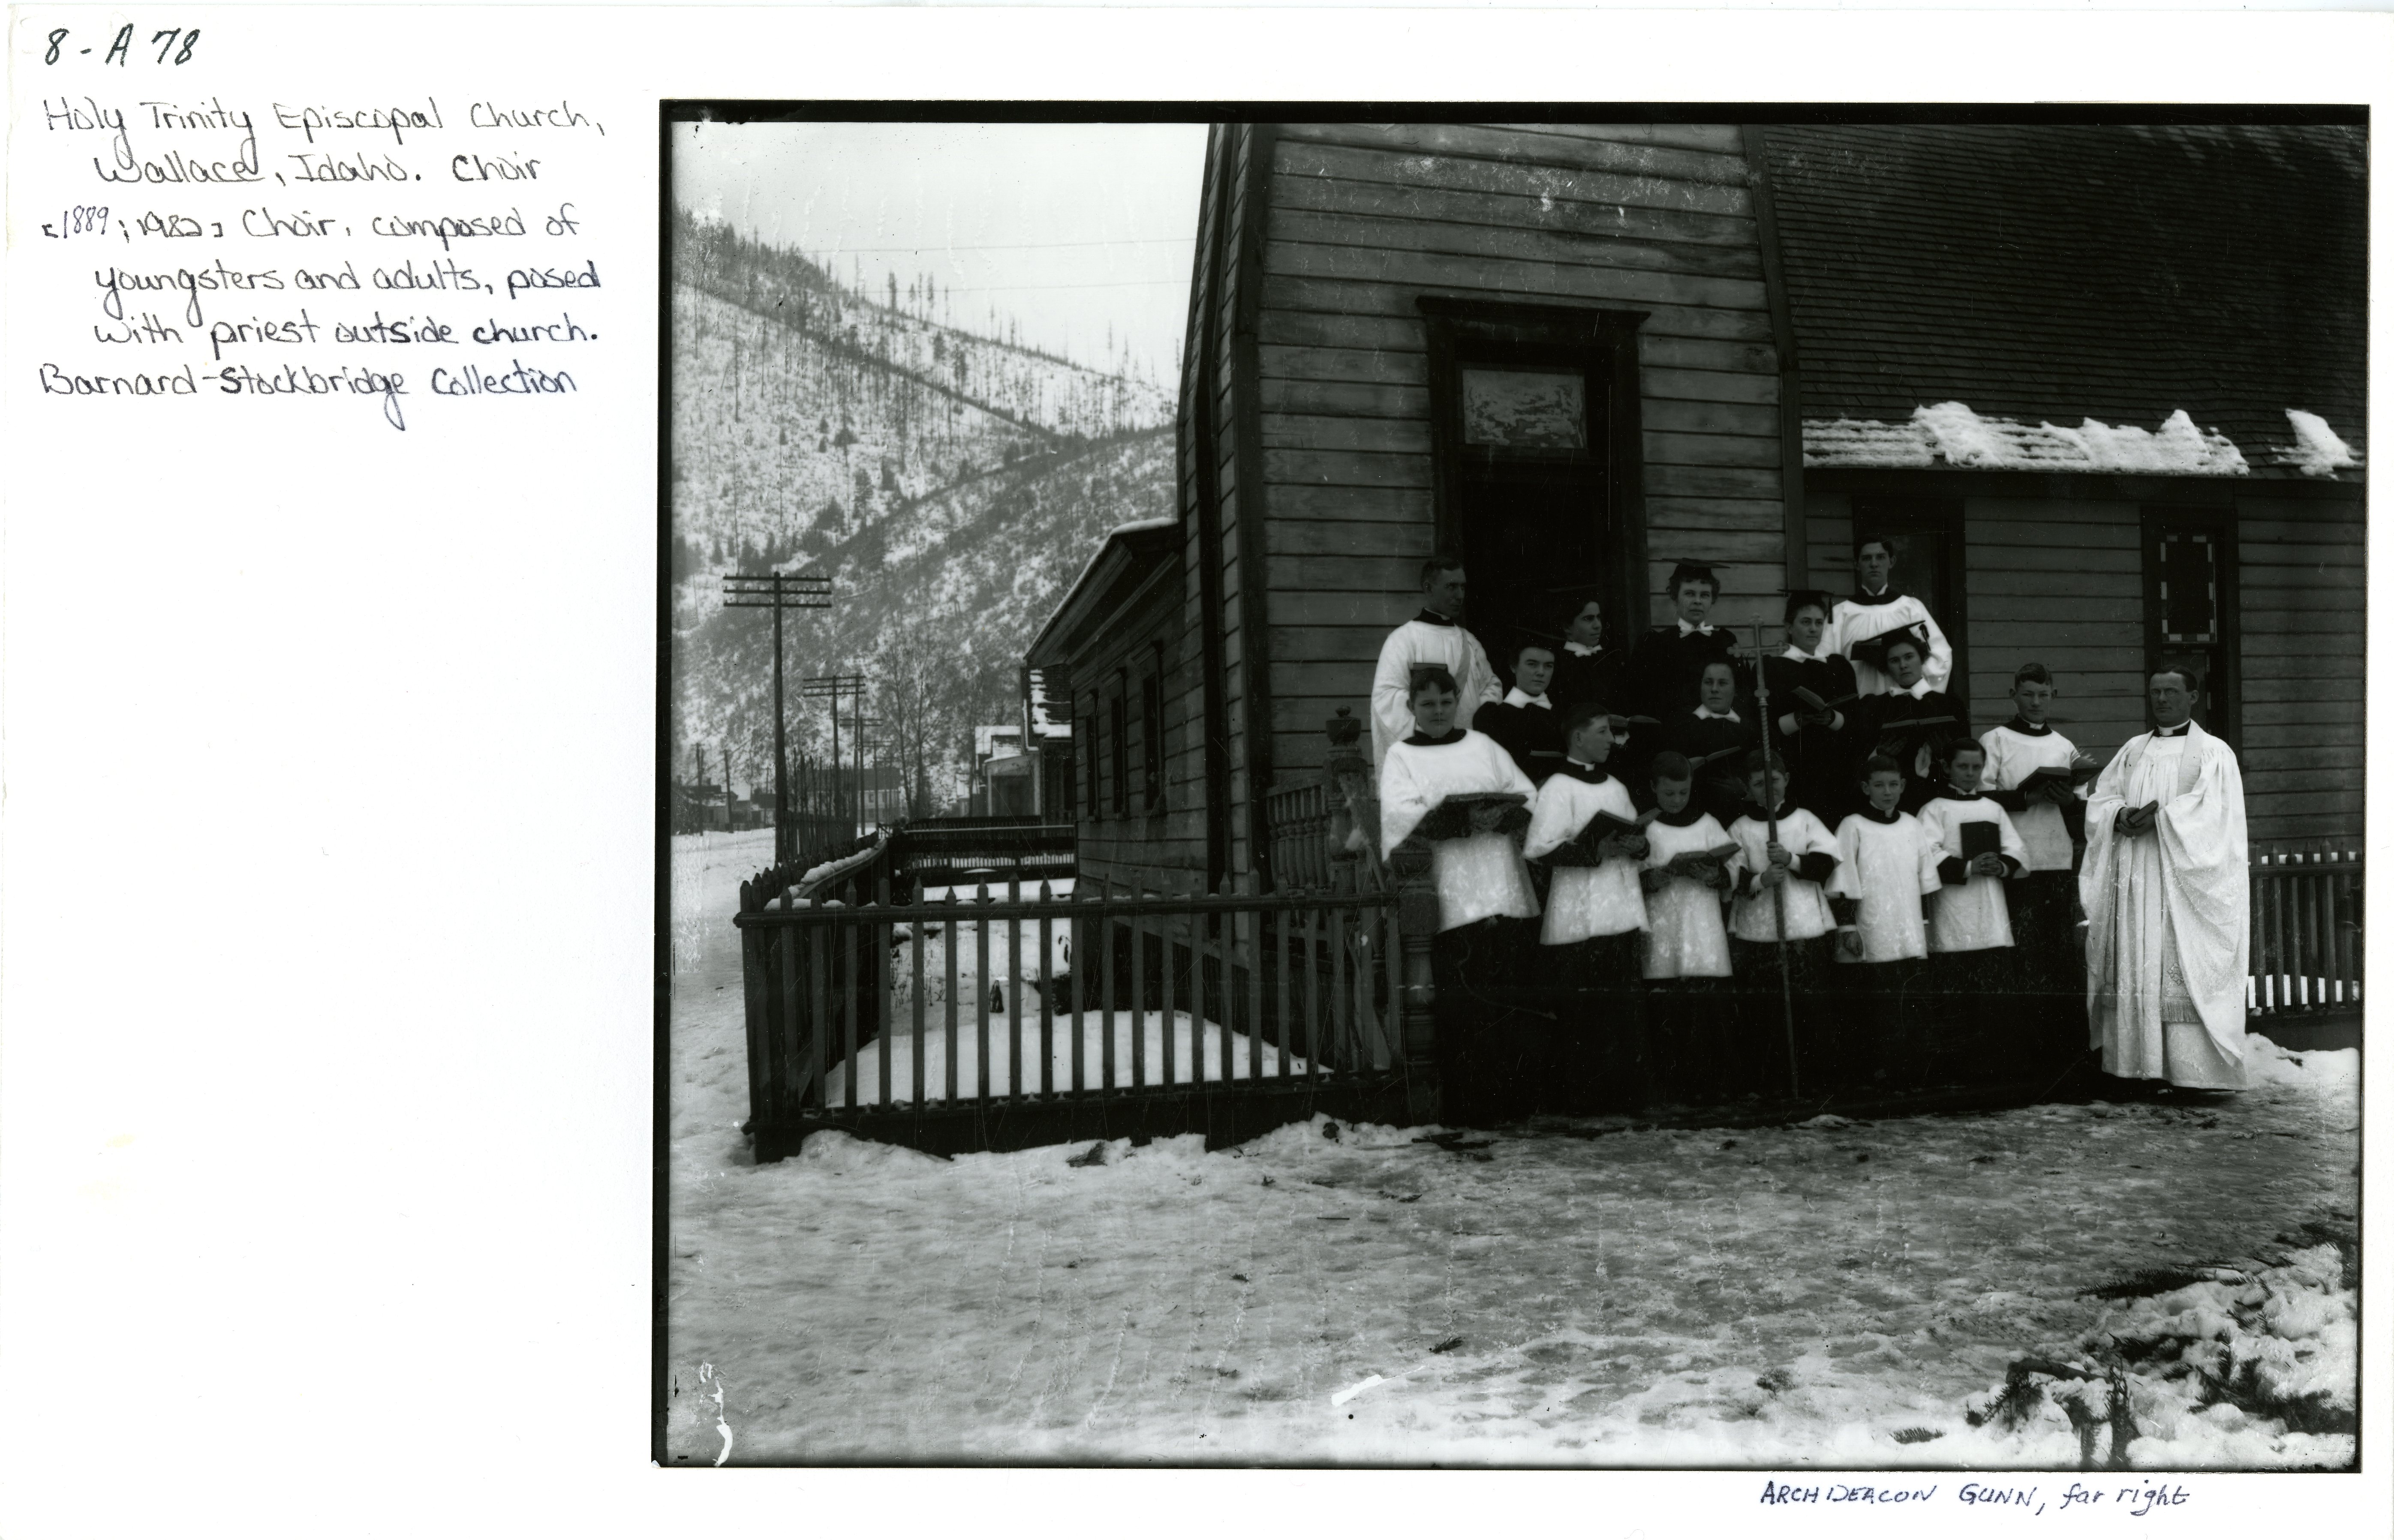 8-A 78
Holy Trinity Episcopal Church,
Wallace, Idaho. Choir
[1889; 1982] Choir, composed of
youngsters and adults, posed
with priest outside church.
Barnard-Stockbridge Collection
ARCHDEACON GUNN, far right